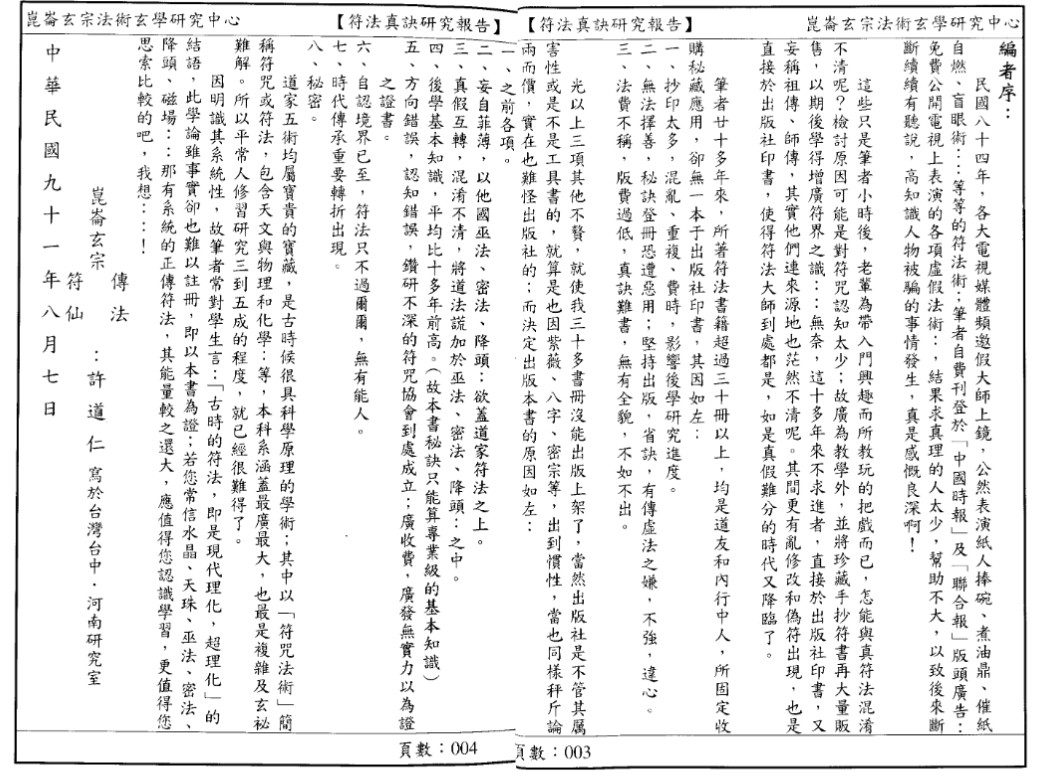 崑崙玄宗法術玄學研究中心
【符法真訣研究報告】
編者序：
民國八十四年，各大電視媒體頻邀假大師上鏡，公然表演紙人捧碗、煮油鼎、催紙
自燃、盲眼術：：等等的符法術；筆者自費刊登於「中國時報」及「聯合報」版頭廣告：
免費公開電視上表演的各項虛假法術：，結果求真理的人太少，幫助不大，以致後來斷
斷續續有聽說，高知識人物被騙的事情發生，真是感慨良深啊！
這些只是筆者小時後，老輩為帶入門興趣而所教玩的把戲而已，怎能與真符法混淆
不清呢？檢討原因可能是對符咒認知太少；故廣為教學外，並將珍藏手抄符書再大量販
售，以期後學得增廣符界之識：：無奈，這十多年來不求進者，直接於出版社印書，又
妄稱祖傳、師傳，其實他們連來源地也茫然不清呢。其間更有亂修改和偽符出現，也是
直接於出版社印書，使得符法大師到處都是，如是真假難分的時代又降臨了。
筆者廿十多年來，所著符法書籍超過三十冊以上，均是道友和內行中人，所固定收
購秘藏應用，卻無一本于出版社印書，其因如左：
一、抄印太多，混亂、重複、費時，影響後學研究進度。
二、無法擇善，秘訣登冊恐遭惡用；堅持出版，省訣，有傳虛法之嫌，不強，違心。
三、法費不稱，版費過低，真訣難書，無有全貌，不如不出。
光以上三項其他不贅，就使我三十多書冊沒能出版上架了，當然出版社是不管其厲
害性或是不是工具書的，就算是也因紫薇、八字、密宗等，出到慣性，當也同樣秤斤論
兩而價，實在也難怪出版社的；而決定出版本書的原因如左：
頁數：003
【符法真訣研究報告】
崑崙玄宗法術玄學研究中心
一、之前各項。
二、妄自菲薄，以他國巫法、密法、降頭：欲蓋道家符法之上。
三、真假互轉，混淆不清，將道法謊加於巫法、密法、降頭：之中。
四、後學基本知識，平均比十多年前高。（故本書秘訣只能算專業級的基本知識）
五、方向錯誤，認知錯誤，鑽研不深的符咒協會到處成立；廣收費，廣發無實力以為證
之證書。
六、自認境界已至，符法只不過爾爾，無有能人。
七、時代傳承重要轉折出現。
八、秘密。
道家五術均屬寶貴的寶藏，是古時候很具科學原理的學術；其中以「符咒法術」簡
稱符咒或符法，包含天文與物理和化學：等，本科系涵蓋最廣最大，也最是複雜及玄秘
難解。所以平常人修習研究三到五成的程度，就已經很難得了。
因明識其系統性，故筆者常對學生言：「古時的符法，即是現代理化，超理化」的
結語，此學論雖事實卻也難以註冊，即以本書為證；若您常信水晶、天珠、巫法、密法、
降頭、磁場：：那有系統的正傳符法，其能量較之還大，應值得您認識學習，更值得您
思索比較的吧，我想：：！
崑崙玄宗
傳法
符仙
：許道仁 寫於台灣台中．河南研究室
中華民國九十一年八月七日
頁數：004